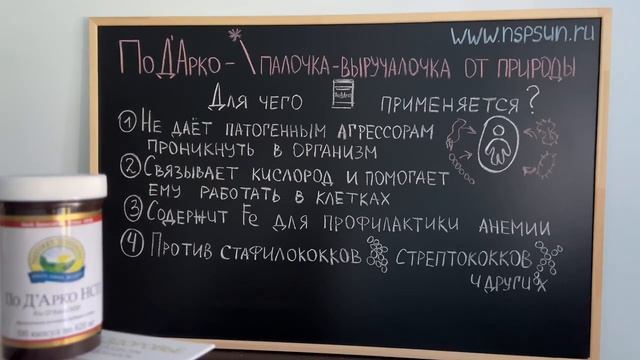 www.nspsun.ru
По Д'Арко - палочка-выручалочка от природы
Для чего применяется?
1 Не даёт патогенным агрессорам
проникнуть в организм
2 Связывает кислород и помогает
ему работать в клетках
3 Содержит Fe для профилактики анемии
4 Против стафилококков стрептококков
и других
По Д'Арко НСП